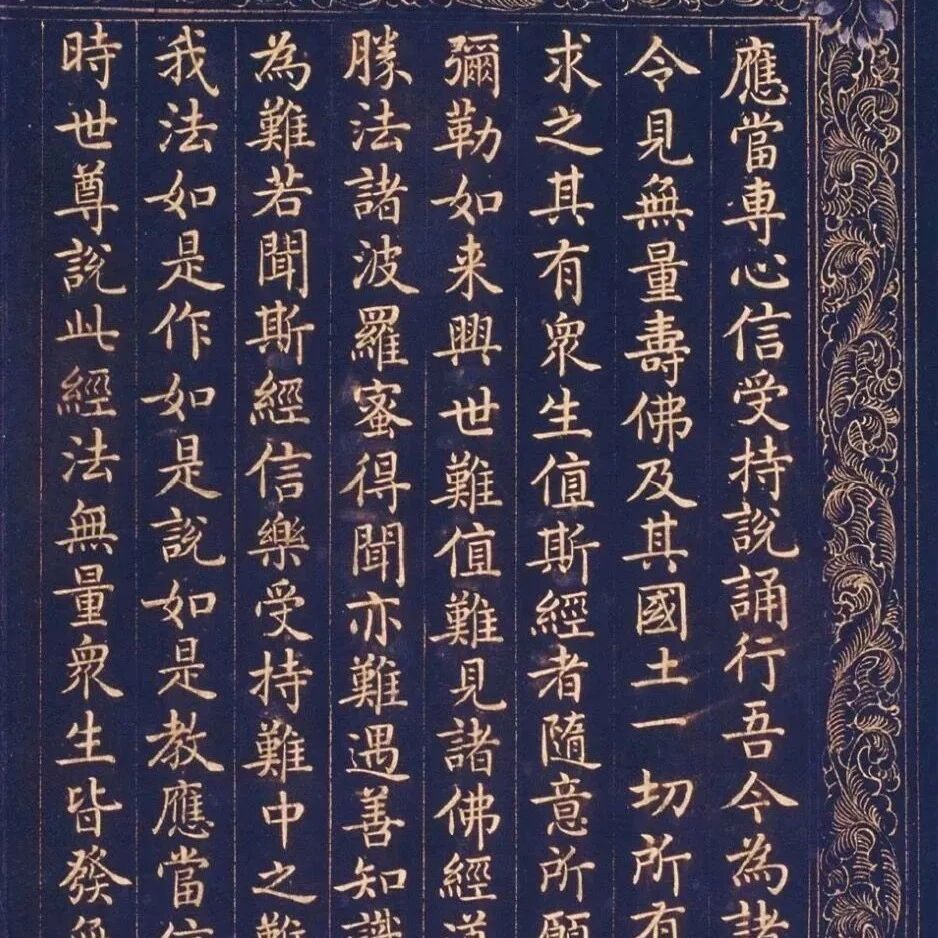 應當專心信受持說誦行吾今為諸
令見無量壽佛及其國土一切所有
求之其有衆生值斯經者隨意所願
彌勒如来興世難值難見諸佛經道
勝法諸波羅蜜得聞亦難遇善知識
為難若聞斯經信樂受持難中之難
我法如是作如是說如是教應當信
時世尊說此經法無量衆生皆發無